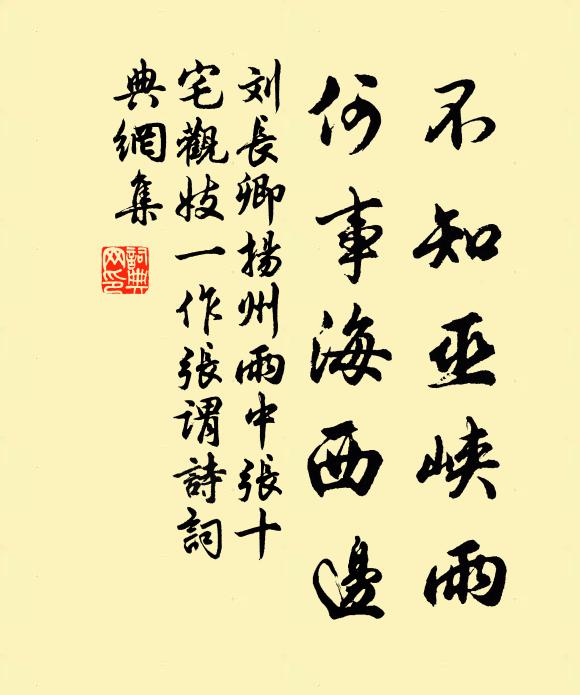 不知巫峡雨
何事海西邊
刘長卿揚州雨中張十
宅觀妓一作張謂詩詞
典網集
詞典網印